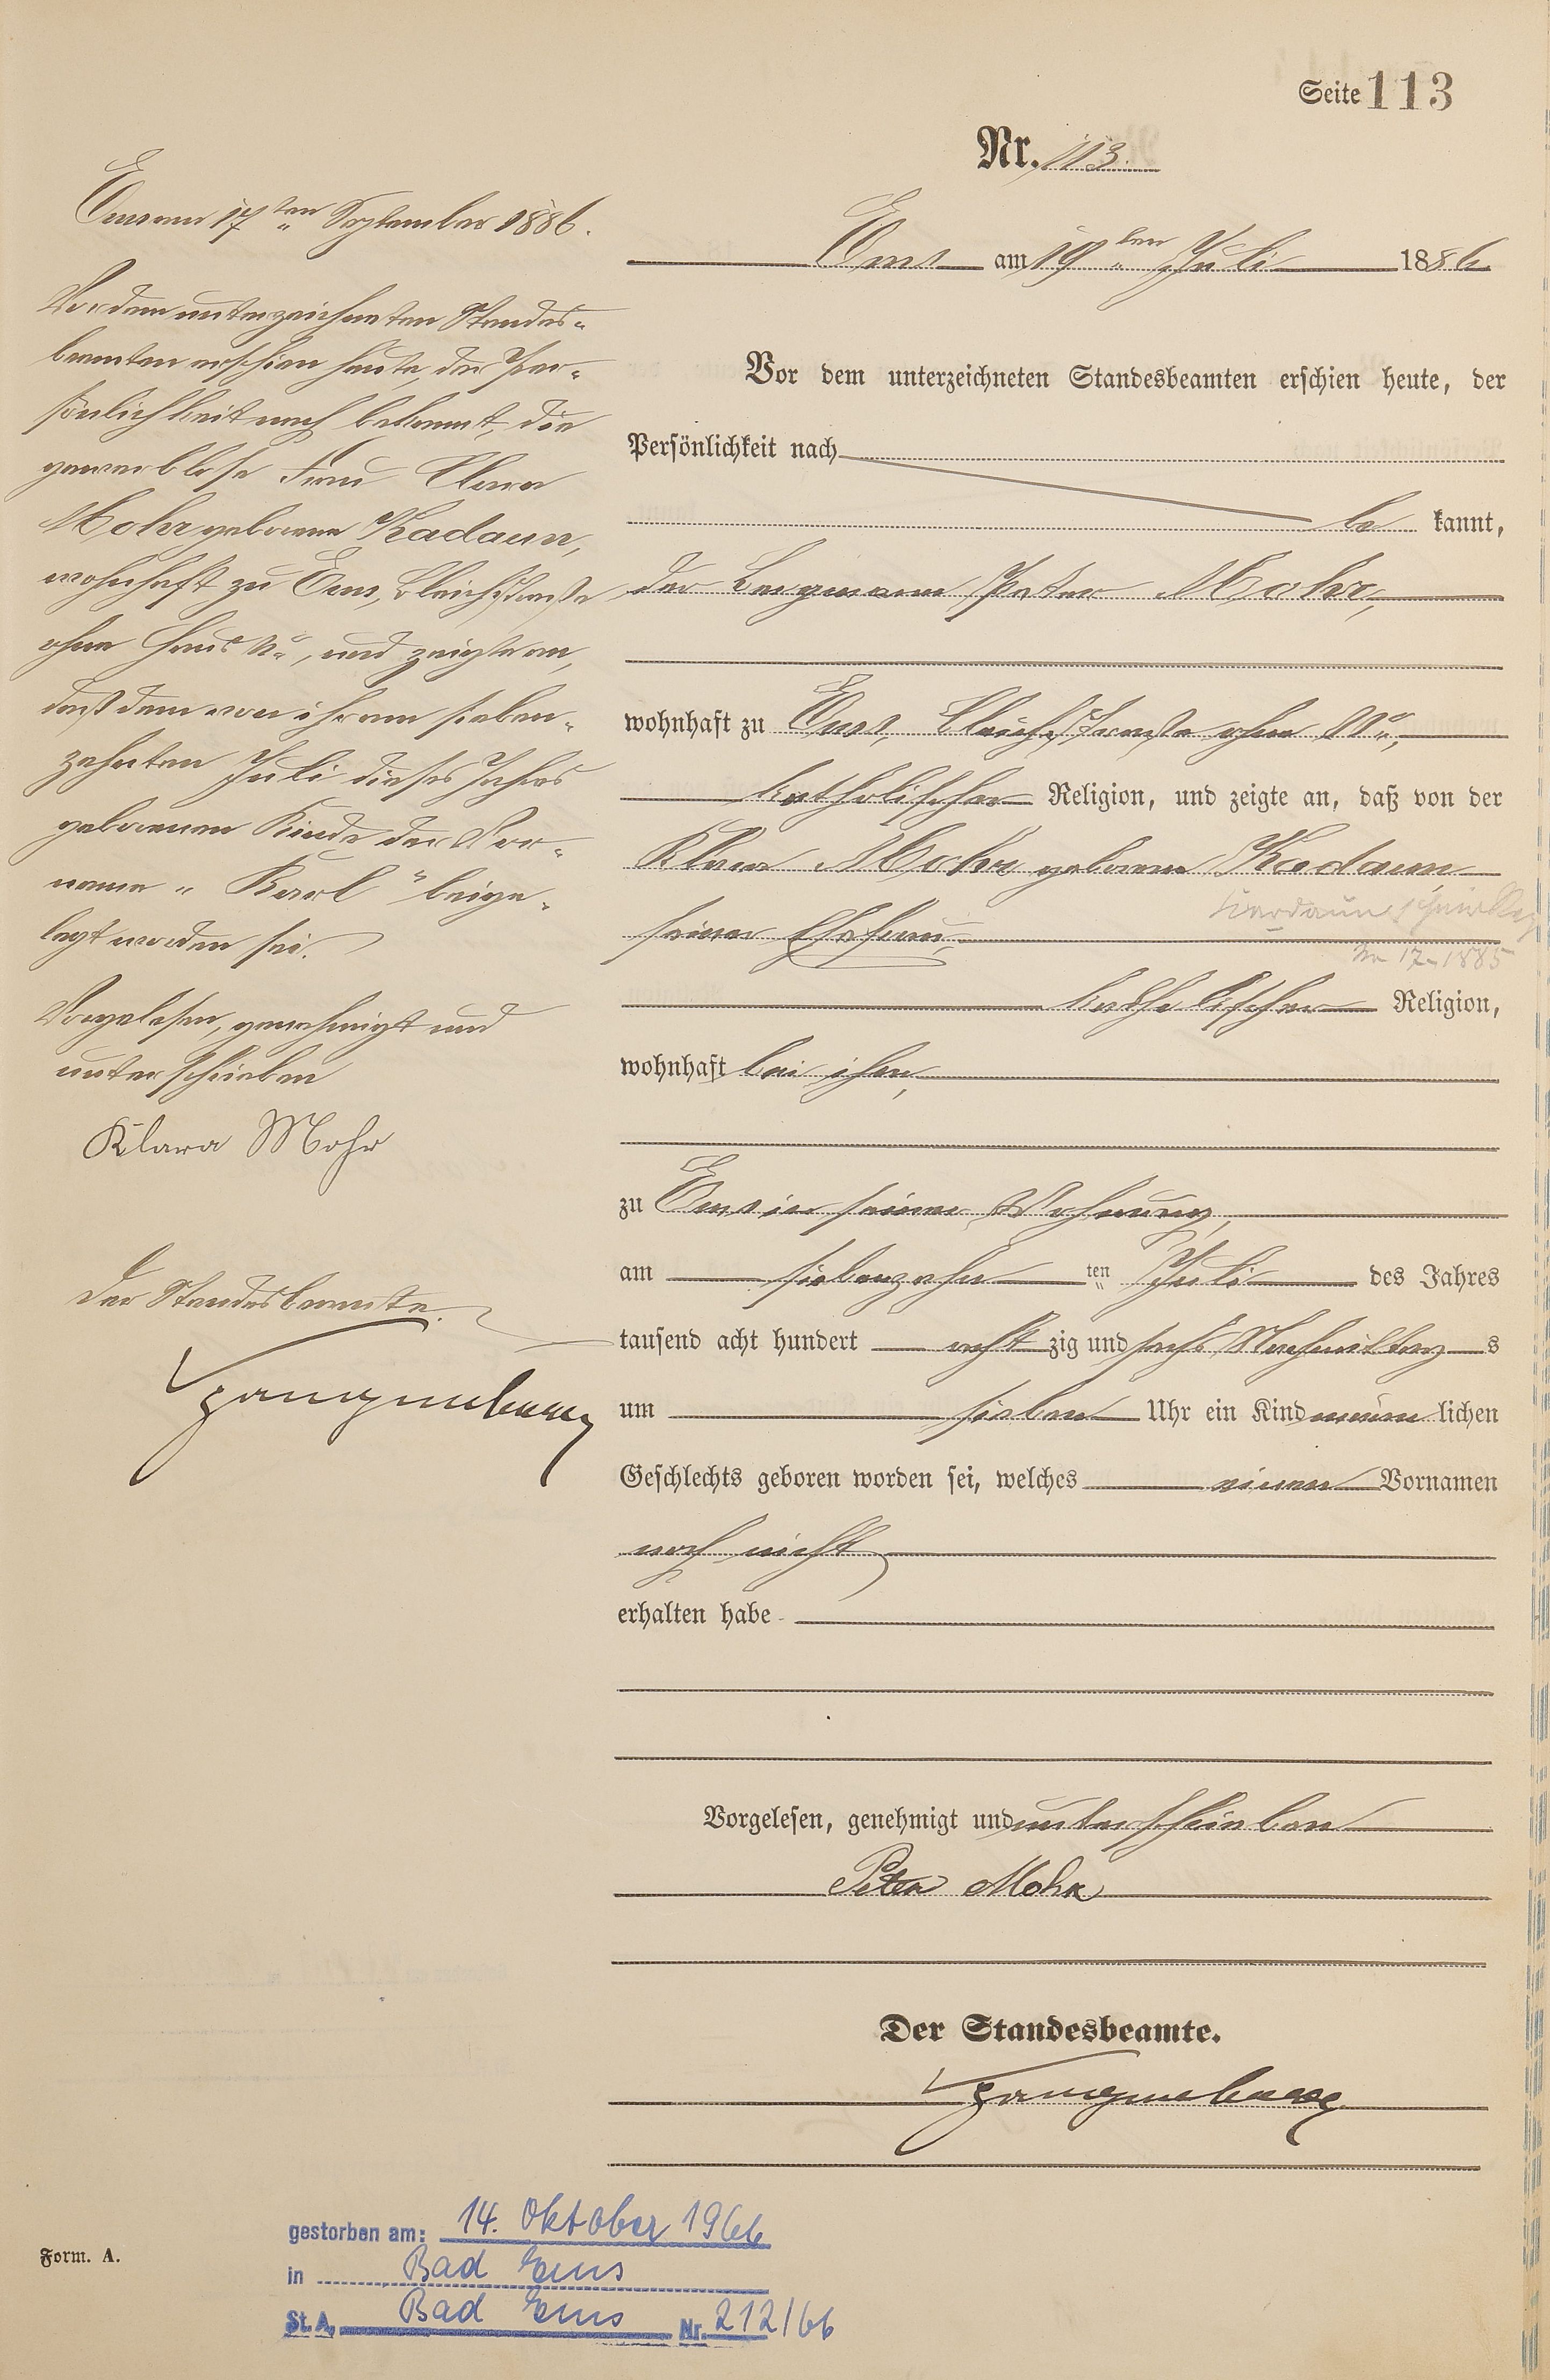 Seite 113
Nr. 113.
Ems am 19ten Juli 1886
Vor dem unterzeichneten Standesbeamten erschien heute, der
Persönlichkeit nach
be kannt,
der Bergmann Peter Mohr,
wohnhaft zu Ems, Bleichstraße ohne No,
katholischer Religion, und zeigte an, daß von der
Klara Mohr geborene Kadaun,
seiner Ehefrau,
No 17 1885
katholischer Religion,
wohnhaft bei ihm,
zu Ems in seiner Wohnung,
am siebenzehn ten Juli des Jahres
tausend acht hundert acht zig und sechs Nachmittag s
um sieben Uhr ein Kind männ lichen
Geschlechts geboren worden sei, welches einen Vornamen
noch nicht
erhalten habe
Vorgelesen, genehmigt und unterschrieben
Peter Mohr
Der Standesbeamte.
Ems am 17ten September 1886.
Vor dem unterzeichneten Standes-
beamten erschien heute, der Per-
sönlichkeit nach bekannt, die
gewerblose Frau Clara
Mohr geborene Kadaun,
wohnhaft zu Ems, Bleichstraße
ohne Haus No, und zeigte an,
daß dem von ihr am sieben-
zehnten Juli dieses Jahres
geborenen Kinde der Vor-
name "Karl" beige-
legt worden sei.
Vorgelesen, genehmigt und
unterschrieben
Klara Mohr
Der Standesbeamte.
Form. A.
gestorben am: 14. Oktober 1966
in Bad Ems
St. A. Bad Ems Nr. 212/66